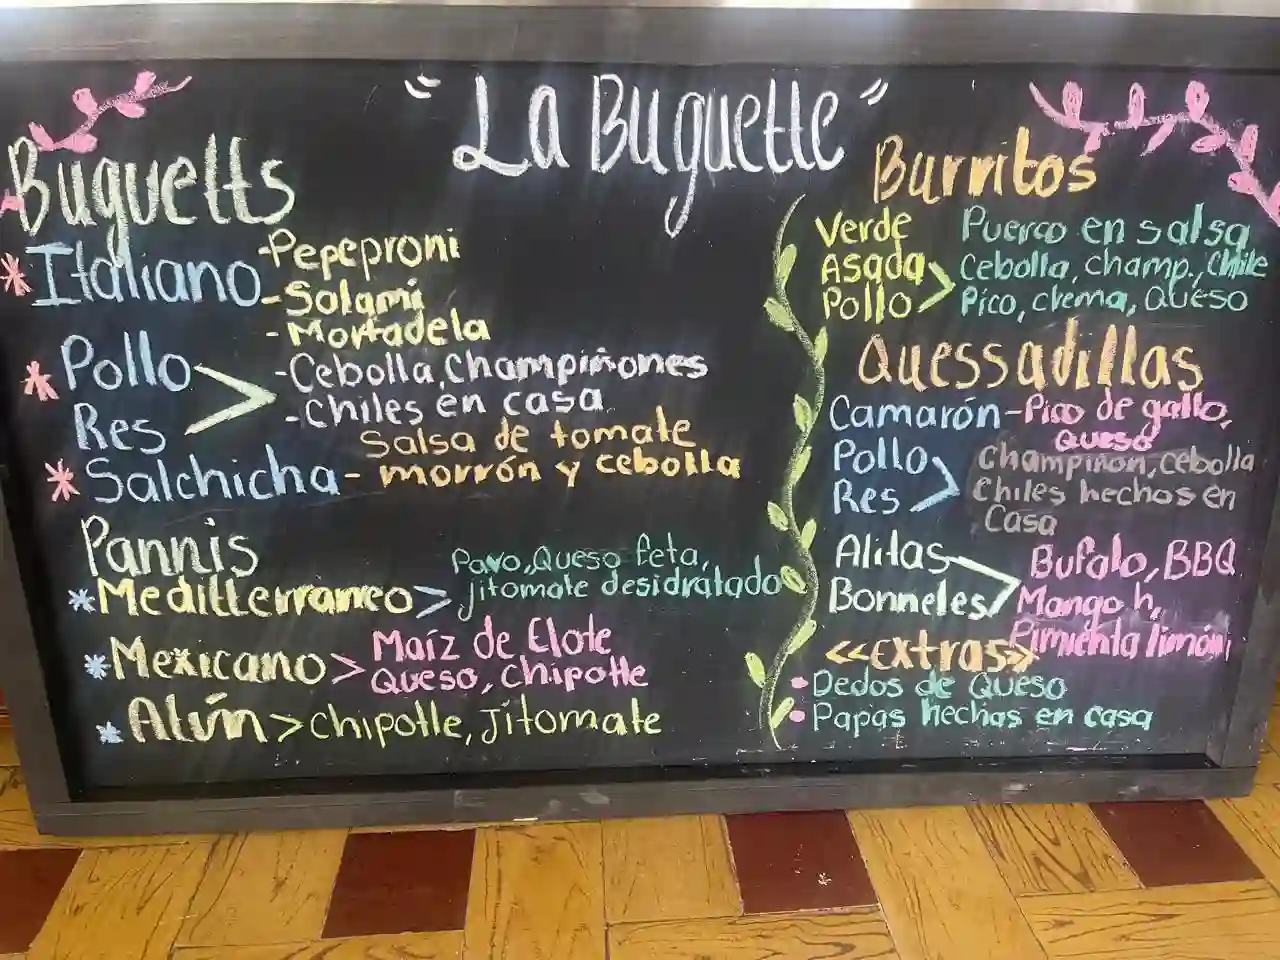 "La Buguette"
Buguetts
* Italiano
-Pepeproni
-Solami
-Mortadela
* Pollo
Res
> -Cebolla, champiñones
-chiles en casa
Salsa de tomate
* Salchicha - morrón y cebolla
Pannis
Pavo, Queso feta,
* Meditterraneo > jitomate desidratado
Maíz de Elote
* Mexicano > Queso, chipotle
* Atún > chipotle, Jitomate
Burritos
Verde
Asada
Pollo
> Puerco en salsa
Cebolla, champ., chile
Pico, crema, Queso
Quessadillas
Camarón - Pico de gallo,
Queso
Pollo
Res
> Champiñon, cebolla
Chiles hechos en
Casa
Alitas
Bonneles
> Bufalo, BBQ
Mango h,
Pimienta limón,
<<Extras>>
• Dedos de Queso
• Papas hechas en casa